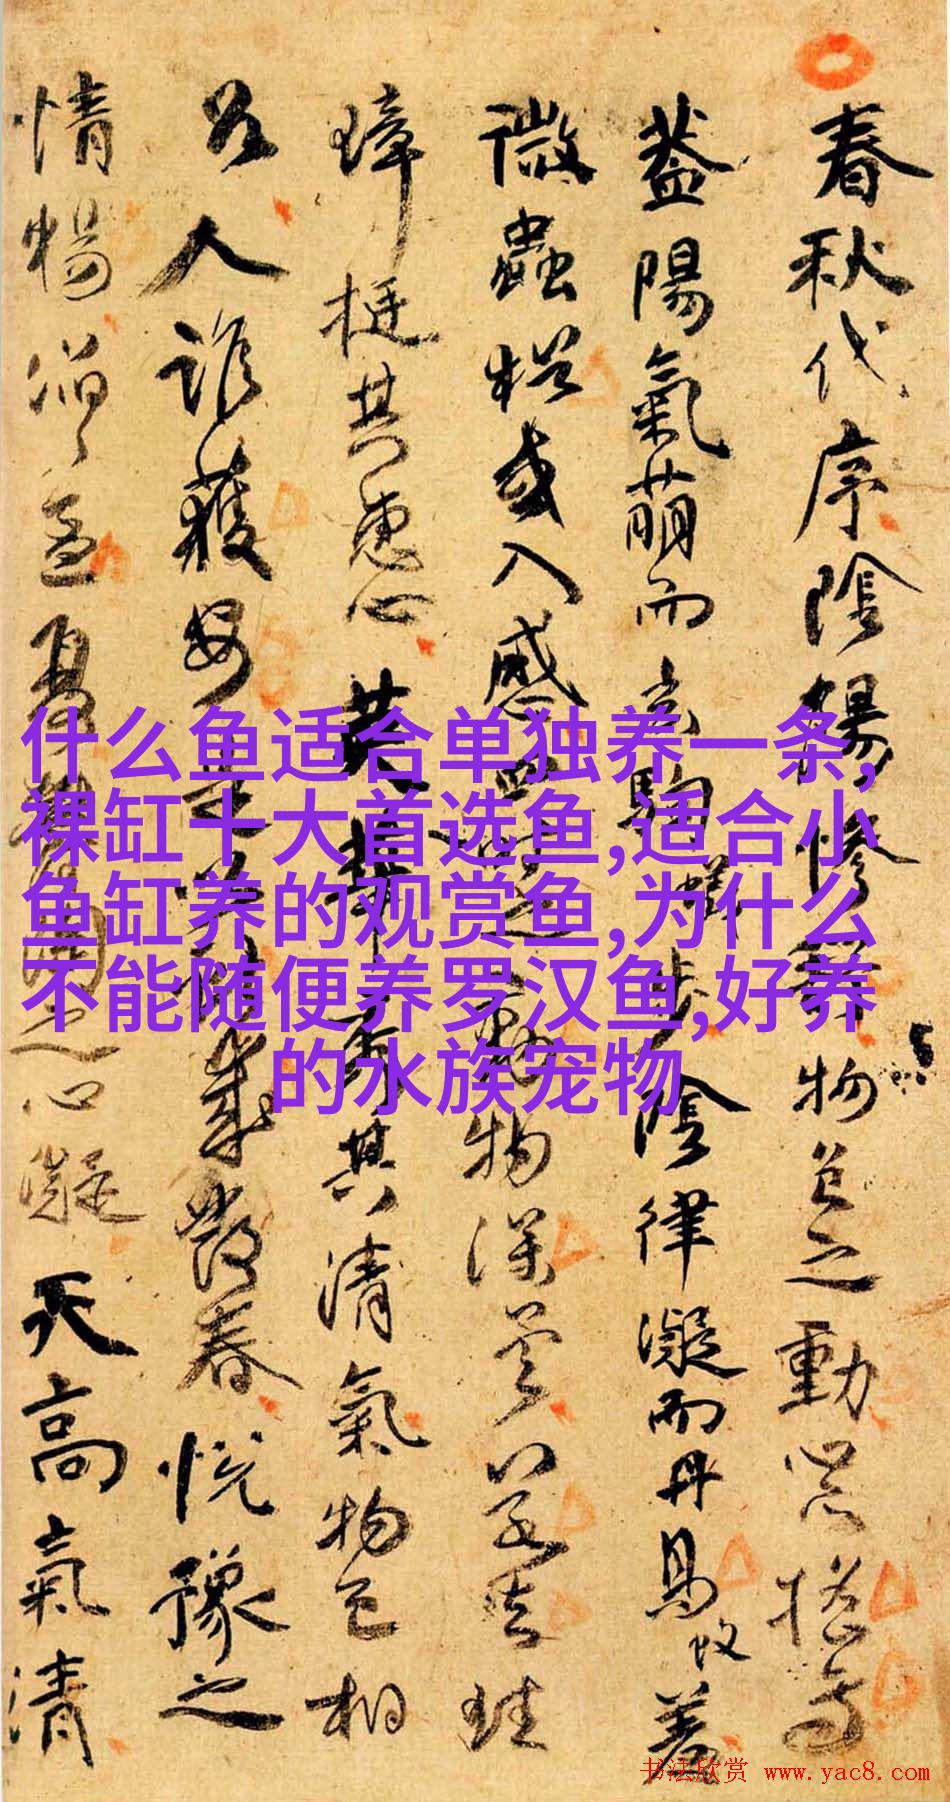 春秋代序陰陽慘舒物色之動心亦搖焉
蓋陽氣萌而玄駒步陰律凝而丹鳥羞
微蟲猶或入感四時之動物深矣若夫珪
璋挺其惠心英華秀其清氣物色相
召人誰獲安是以獻歲發春悅豫之
情暢滔滔孟夏鬱陶之心凝天高氣清
什么鱼适合单独养一条,
裸缸十大首选鱼,适合小
鱼缸养的观赏鱼,为什么
不能随便养罗汉鱼,好养
的水族宠物
书法欣赏 www.yac8.com